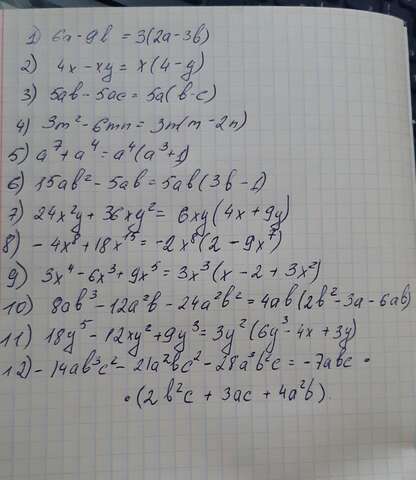 1) 6a - 9b = 3(2a - 3b)
2) 4x - xy = x(4 - y)
3) 5ab - 5ac = 5a(b - c)
4) 3m² - 6mn = 3m(m - 2n)
5) a⁷ + a⁴ = a⁴(a³ + 1)
6) 15ab² - 5ab = 5ab(3b - 1)
7) 24x²y + 36xy² = 6xy(4x + 9y)
8) - 4x⁸ + 18x¹⁵ = -2x⁸(2 - 9x⁷)
9) 3x⁴ - 6x³ + 9x⁵ = 3x³(x - 2 + 3x²)
10) 8ab³ - 12a²b - 24a²b² = 4ab(2b² - 3a - 6ab)
11) 18y⁵ - 12xy² + 9y³ = 3y²(6y³ - 4x + 3y)
12) - 14ab³c² - 21a²bc² - 28a³b²c = -7abc ·
· (2b²c + 3ac + 4a²b).